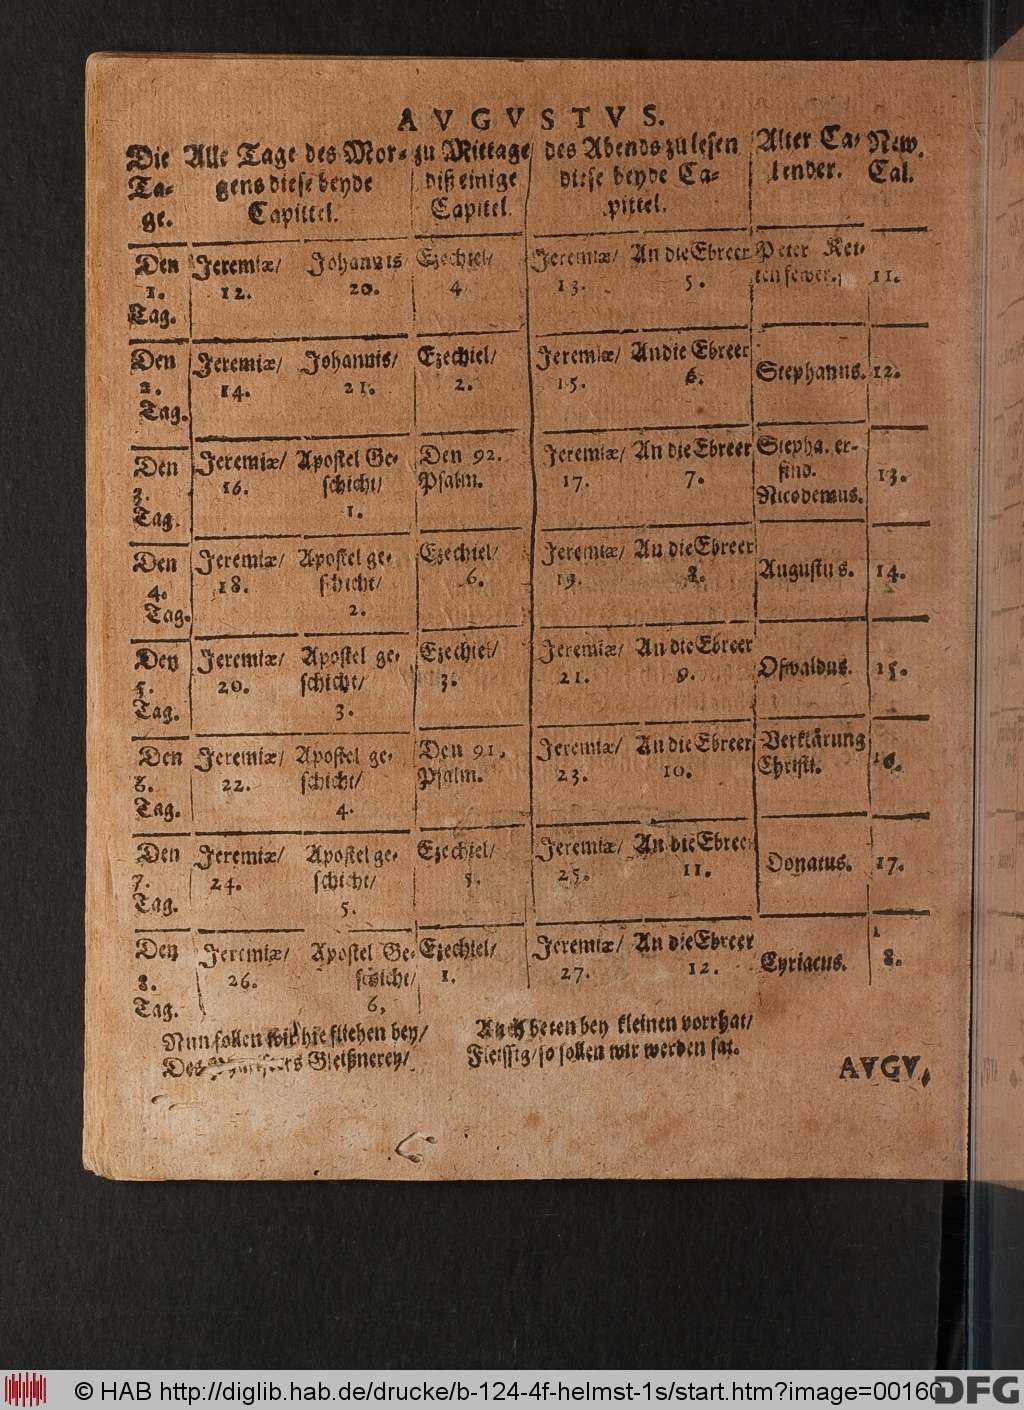 AVGVSTVS.
Die Tage.
Alle Tage des Mor-
gens diese beyde
Capittel.
zu Mittage
diß einige
Capitel.
des Abends zu lesen
diese beyde Ca-
pittel.
Alter Ca-
lender.
New.
Cal.
Den
1.
Tag.
Jeremiæ/
12.
Johannis
20.
Ezechiel/
4
Jeremiæ/
13.
An die Ebreer
5.
Peter Ket-
tenfewer.
11.
Den
2.
Tag.
Jeremiæ/
14.
Johannis/
21.
Ezechiel/
2.
Jeremiæ/
15.
An die Ebreer
6.
Stephanus.
12.
Den
3.
Tag.
Jeremiæ/
16.
Apostel Ge-
schicht/
1.
Den 92.
Psalm.
Jeremiæ/
17.
An die Ebreer
7.
Stepha. er-
find.
Nicodemus.
13.
Den
4.
Tag.
Jeremiæ/
18.
Apostel ge-
schicht/
2.
Ezechiel/
6.
Jeremiæ/
19.
An die Ebreer
8.
Augustus.
14.
Den
5.
Tag.
Jeremiæ/
20.
Apostel ge-
schicht/
3.
Ezechiel/
3.
Jeremiæ/
21.
An die Ebreer
9.
Oswaldus.
15.
Den
6.
Tag.
Jeremiæ/
22.
Apostel ge-
schicht/
4.
Den 91.
Psalm.
Jeremiæ/
23.
An die Ebreer
10.
Verklärung
Christi.
16.
Den
7.
Tag.
Jeremiæ/
24.
Apostel ge-
schicht/
5.
Ezechiel/
5.
Jeremiæ/
25.
An die Ebree
11.
Donatus.
17.
Den
8.
Tag.
Jeremiæ/
26.
Apostel Ge-
schicht/
6,
Ezechiel/
1.
Jeremiæ/
27.
An die Ebreer
12.
Cyriacus.
1
8.
Nun sollen wir hie fliehen bey/
Des Gleißnerey/
Auch beten bey kleinen vorrhat/
Fleissig/ so sollen wir werden sat.
AVGV,
© HAB http://diglib.hab.de/drucke/b-124-4f-helmst-1s/start.htm?image=00160
DFG